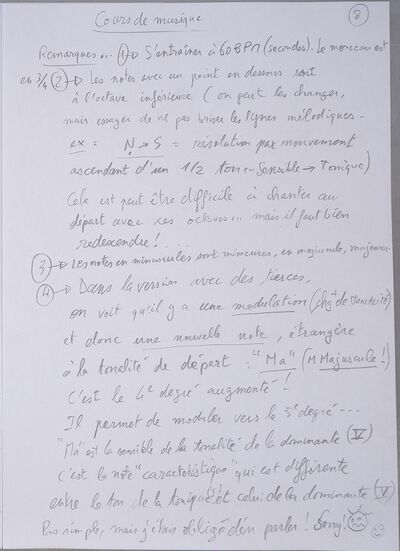 Cours de musique
8
Remarques... 1 → S'entraîner à 60 BPM (secondes). Le morceau est
en 3/4 2 → Les notes avec un point en dessous sont
à l'octave inférieure (on peut les changer,
mais essayer de ne pas briser les lignes mélodiques.
ex = N → S = résolution par mouvement
ascendant d'un 1/2 ton... Sensible → Tonique)
Cela est peut être difficile à chanter au
départ avec ces octaves... mais il faut bien
redescendre! ....
3 → Les notes en minuscules sont mineures, en majuscule, majeures.
4 → Dans la version avec des tierces,
on voit qu'il y a une modulation (chgt de tonalité)
et donc une nouvelle note, étrangère
à la tonalité de départ : "Ma" (M Majuscule!)
C'est le 4e degré augmenté!
Il permet de moduler vers le 5e degré---
"Ma" est la sensible de la tonalité de la dominante (V)
C'est la note "caractéristique" qui est différente
entre le ton de la tonique et celui de la dominante (V)
Pas simple, mais j'étais obligé d'en parler! Sorry!